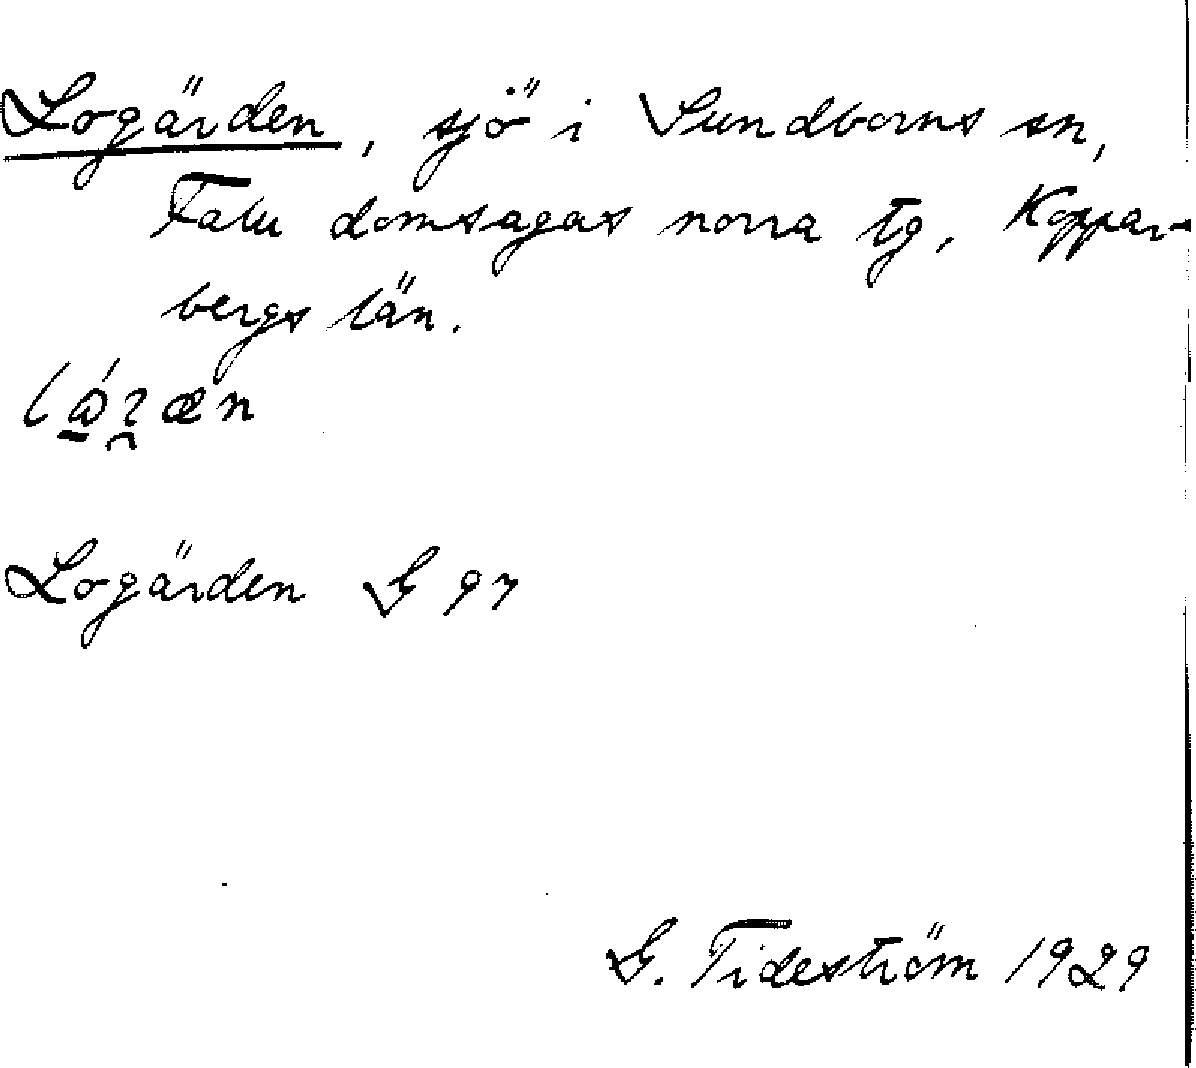 Logärden, sjö i Sundborns sn,
Falu domsagas norra tg, Koppar-
bergs län.
Logärden G 97
G. Tideström 1929